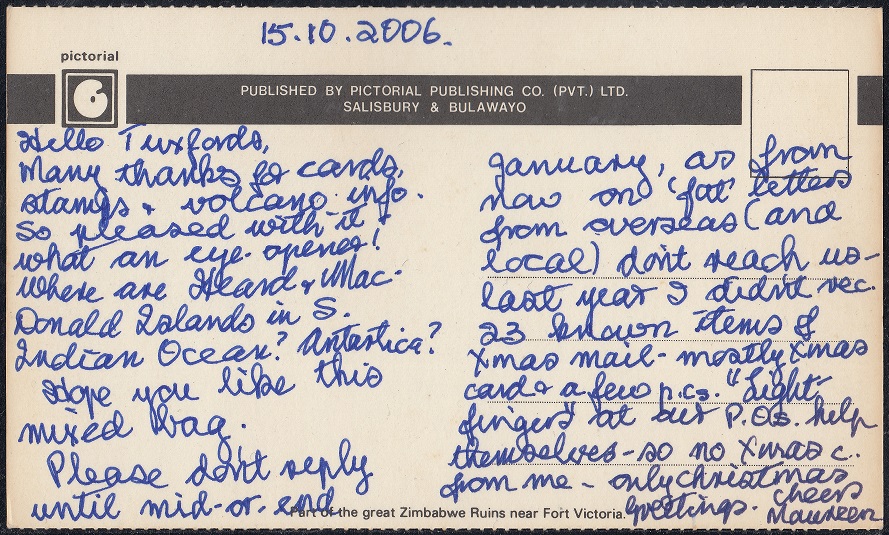 15.10.2006.
pictorial
PUBLISHED BY PICTORIAL PUBLISHING CO. (PVT.) LTD.
SALISBURY & BULAWAYO
Hello Tuxfords,
Many thanks for cards,
stamps & volcano info.
So pleased with it -
what an eye-opener!
Where are Heard & Mac-
Donald Islands in S.
Indian Ocean? Antartica?
Hope you like this
mixed bag.
Please don't reply
until mid-or-end
January, as from
now on 'fat' letters
from overseas (and
local) don't reach us-
last year I didn't rec.
23 known items of
Xmas mail - mostly Xmas
cards & a few p.cs. "Light-
fingers" at our P.Os. help
themselves - so no Xmas c.
from me - only christmas
greetings. cheers
Maureen
Part of the great Zimbabwe Ruins near Fort Victoria.